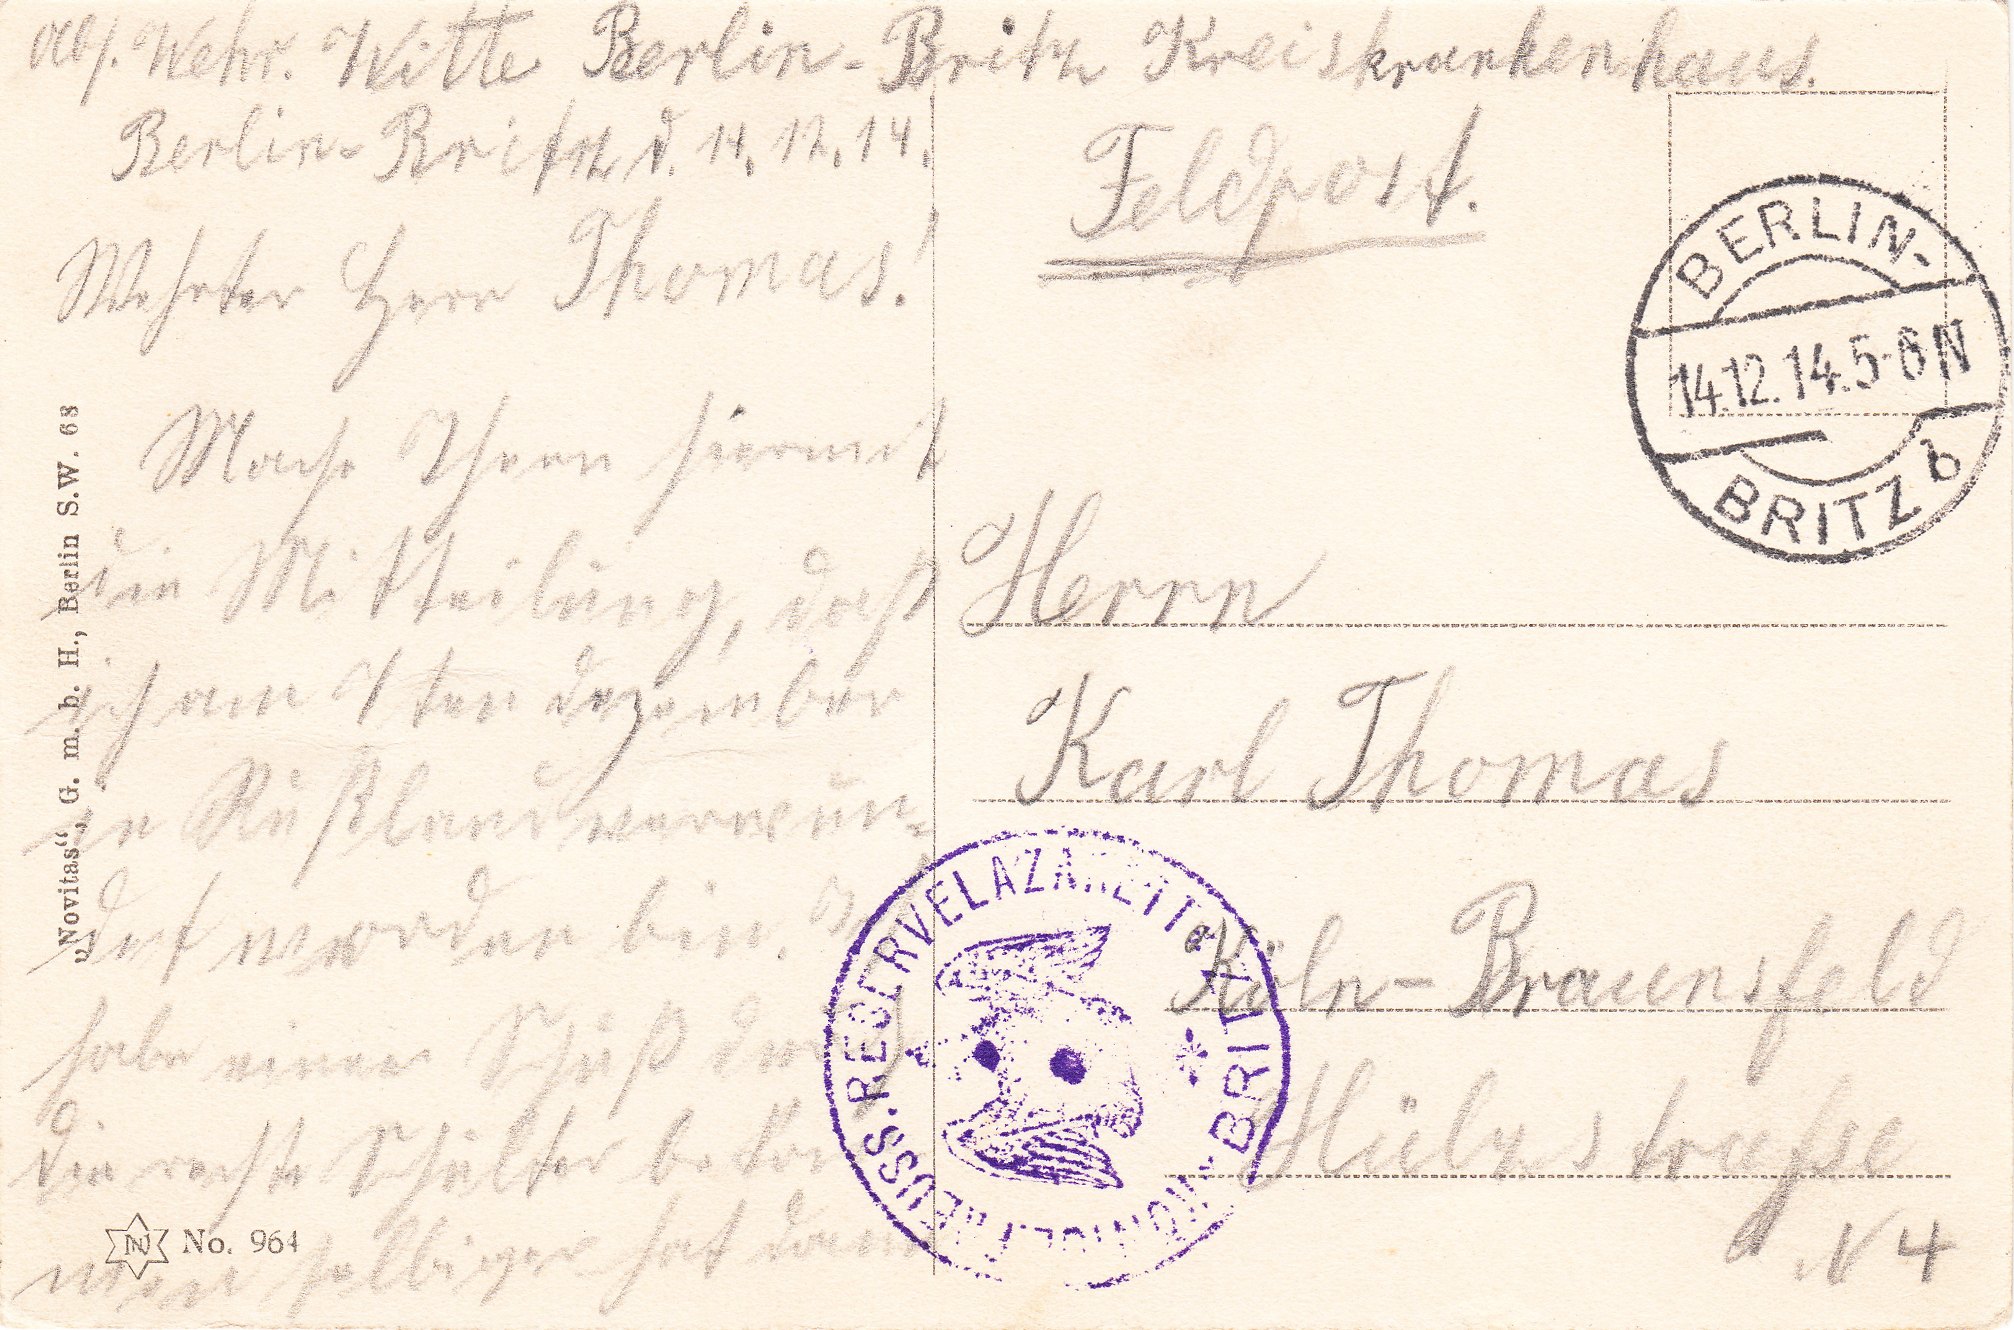 Abs. Wehr. Witte Berlin-Britz Kreiskrankenhaus.
Berlin-Britz, d. 14. 12. 14.
Werter Herr Thomas!
Mache Ihnen hiermit
die Mitteilung, daß
ich am 1ten Dezember
in Rußland verwun-
det worden bin. Ich
habe einen Schuß durch
die rechte Schulter bekom
men selbiger hat dann
Feldpost.
BERLIN-
14.12.14.5-6N
BRITZ b
Herrn
Karl Thomas
Köln-Braunsfeld
Hülzstraße
N 4
KÖNIGL. PREUSS. RESERVELAZARETT * BRITZ
„Novitas“, G. m. b. H., Berlin S.W. 68
N No. 964